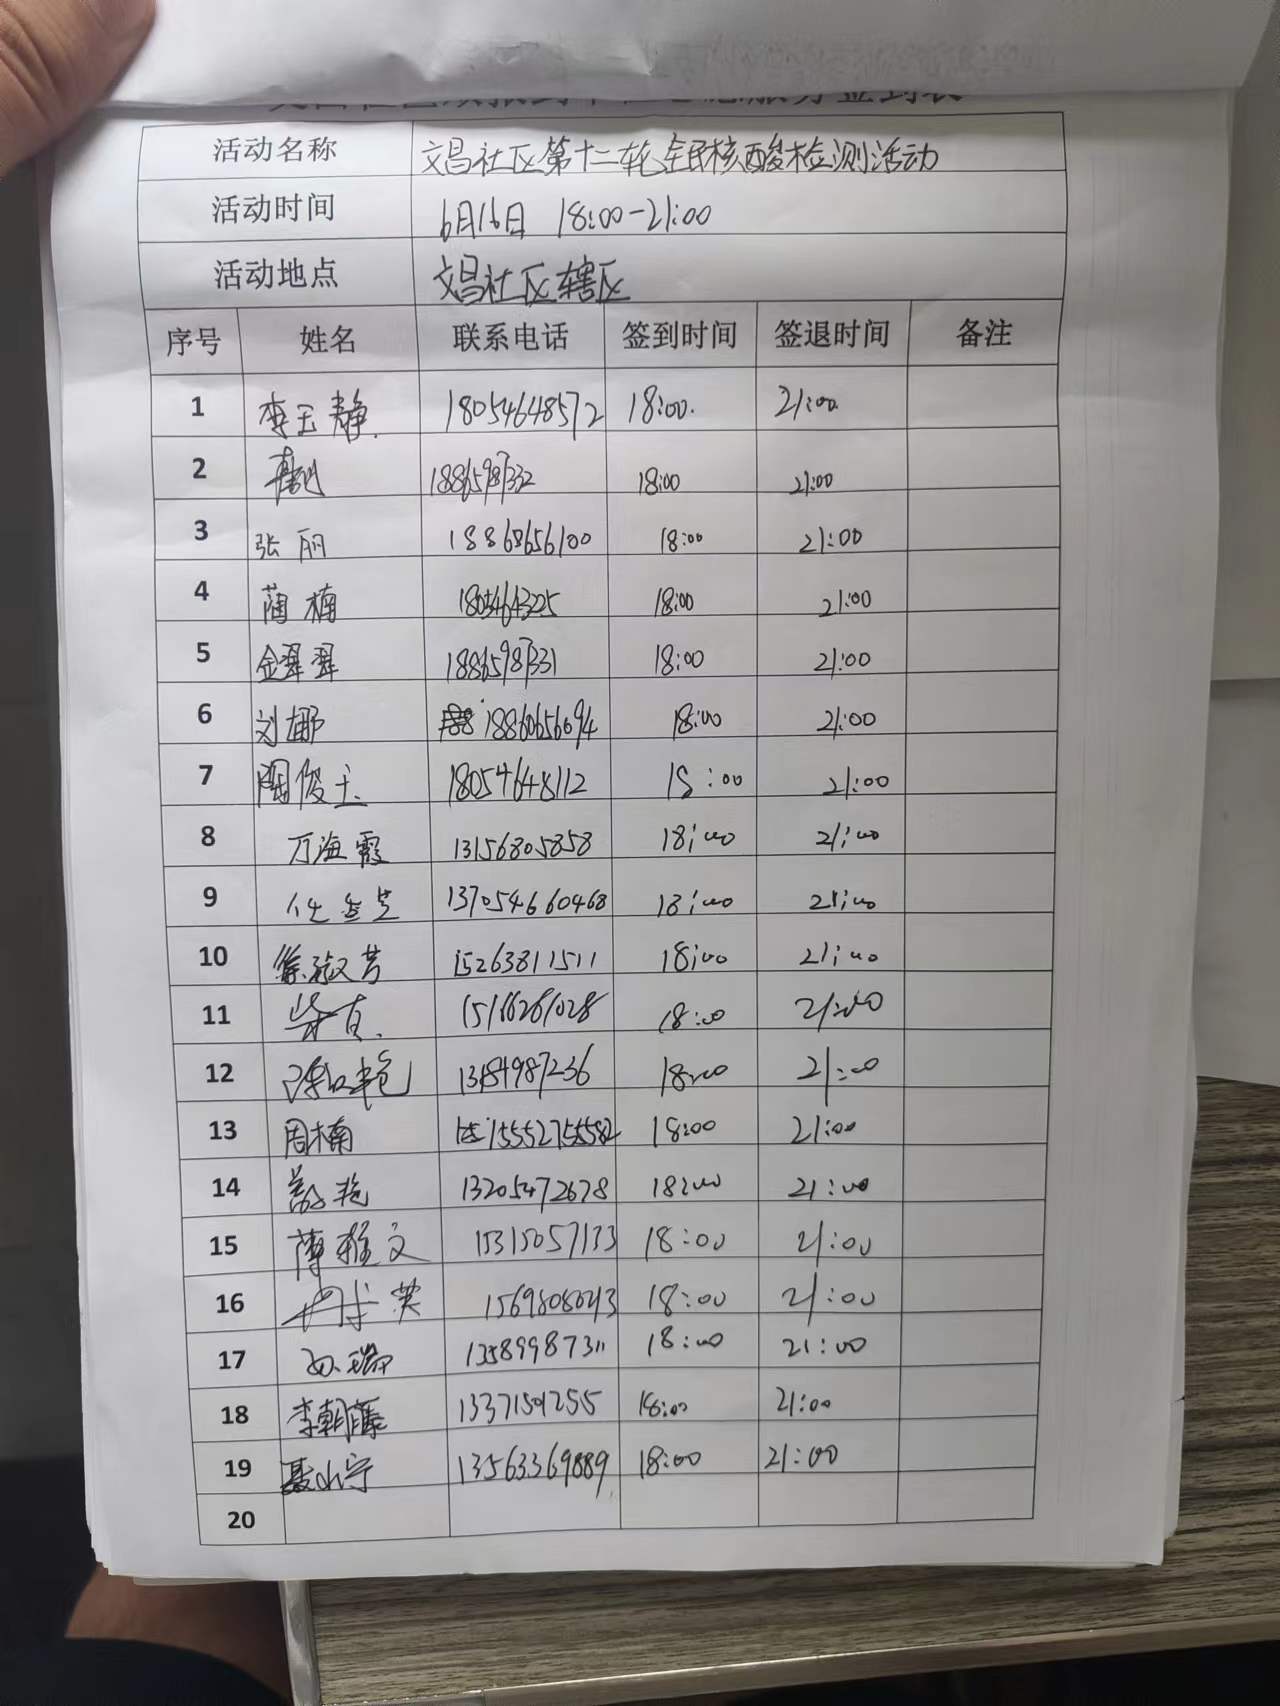 活动名称 文昌社区第十二轮全民核酸检测活动
活动时间 6月16日 18:00-21:00
活动地点 文昌社区辖区
序号 姓名 联系电话 签到时间 签退时间 备注
1 李玉静 18054648572 18:00 21:00
2 18865987332 18:00 21:00
3 张丽 18868656100 18:00 21:00
4 蔺楠 18:00 21:00
5 金翠翠 18865987331 18:00 21:00
6 刘娜 18860656094 18:00 21:00
7 陶俊 18054648112 18:00 21:00
8 万海霞 13156805858 18:00 21:00
9 137054660468 18:00 21:00
10 徐淑芳 15263811511 18:00 21:00
11 18:00 21:00
12 13184987236 18:00 21:00
13 周楠 15552755582 18:00 21:00
14 13205472678 18:00 21:00
15 薄雅文 15315057133 18:00 21:00
16 18:00 21:00
17 13589987311 18:00 21:00
18 李朝 18:00 21:00
19 聂小宁 13563369889 18:00 21:00
20